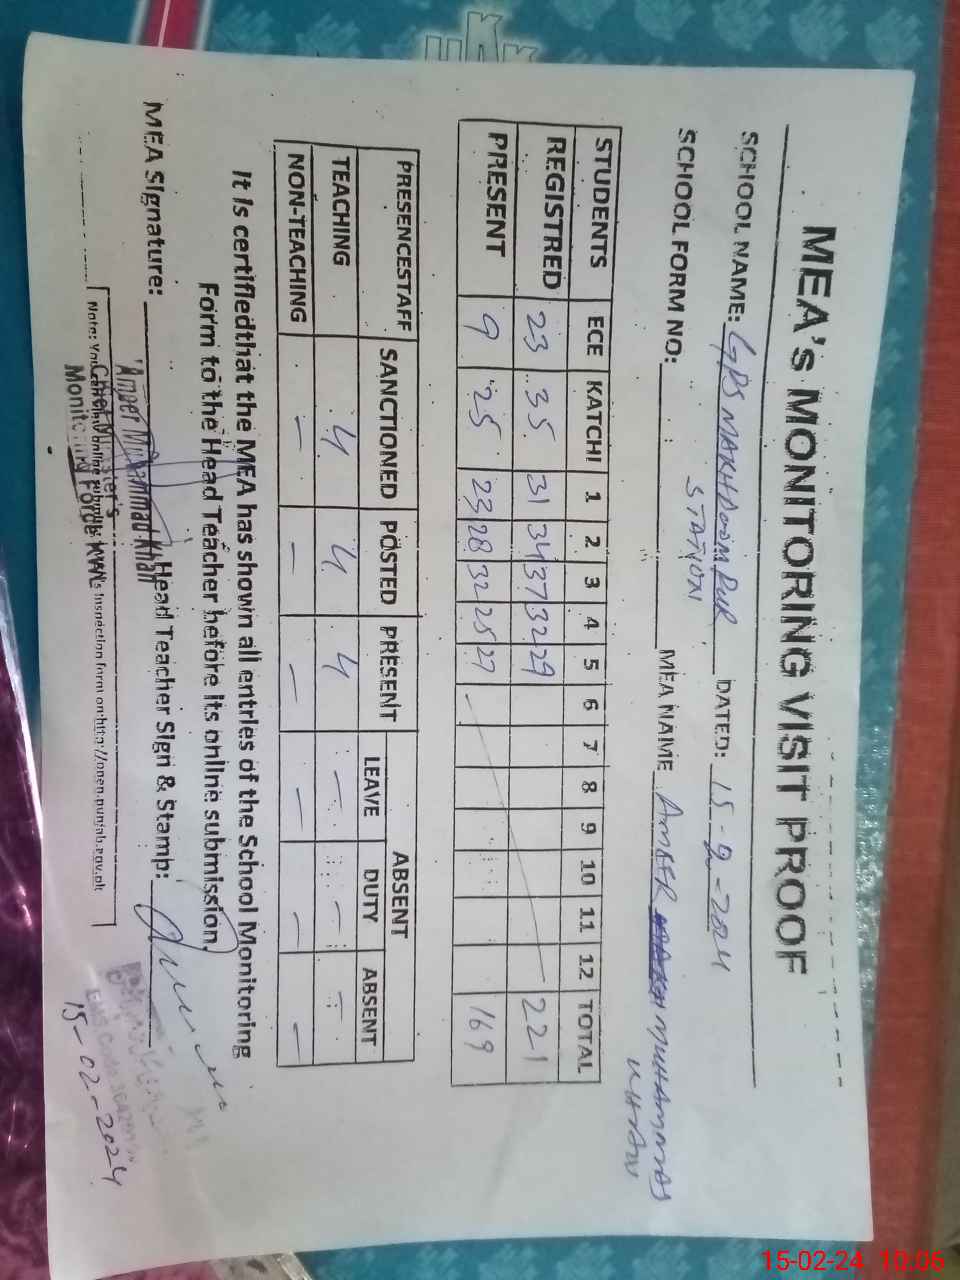 MEA's MONITORING VISIT PROOF
SCHOOL NAME: GPS MAKHDOOM PUR STATION DATED: 15-2-2024
SCHOOL FORM NO: MEA NAME AMEER MUHAMMAD KHAN
STUDENTS ECE KATCHI 1 2 3 4 5 6 7 8 9 10 11 12 TOTAL
REGISTRED 23 35 31 34 37 32 29 221
PRESENT 9 25 23 28 32 25 27 169
PRESENCESTAFF SANCTIONED POSTED PRESENT ABSENT
LEAVE DUTY ABSENT
TEACHING 4 4 4 - - -
NON-TEACHING - - - - - -
It is certifiedthat the MEA has shown all entries of the School Monitoring
Form to the Head Teacher before its online submission.
MEA Signature: Head Teacher Sign & Stamp:
Ameer Muhammad Khan
Chief Minister's
Monitoring Force KWL
Inspection form on:http://open.punjab.gov.pk
15-02-2024
15-02-24 10:06